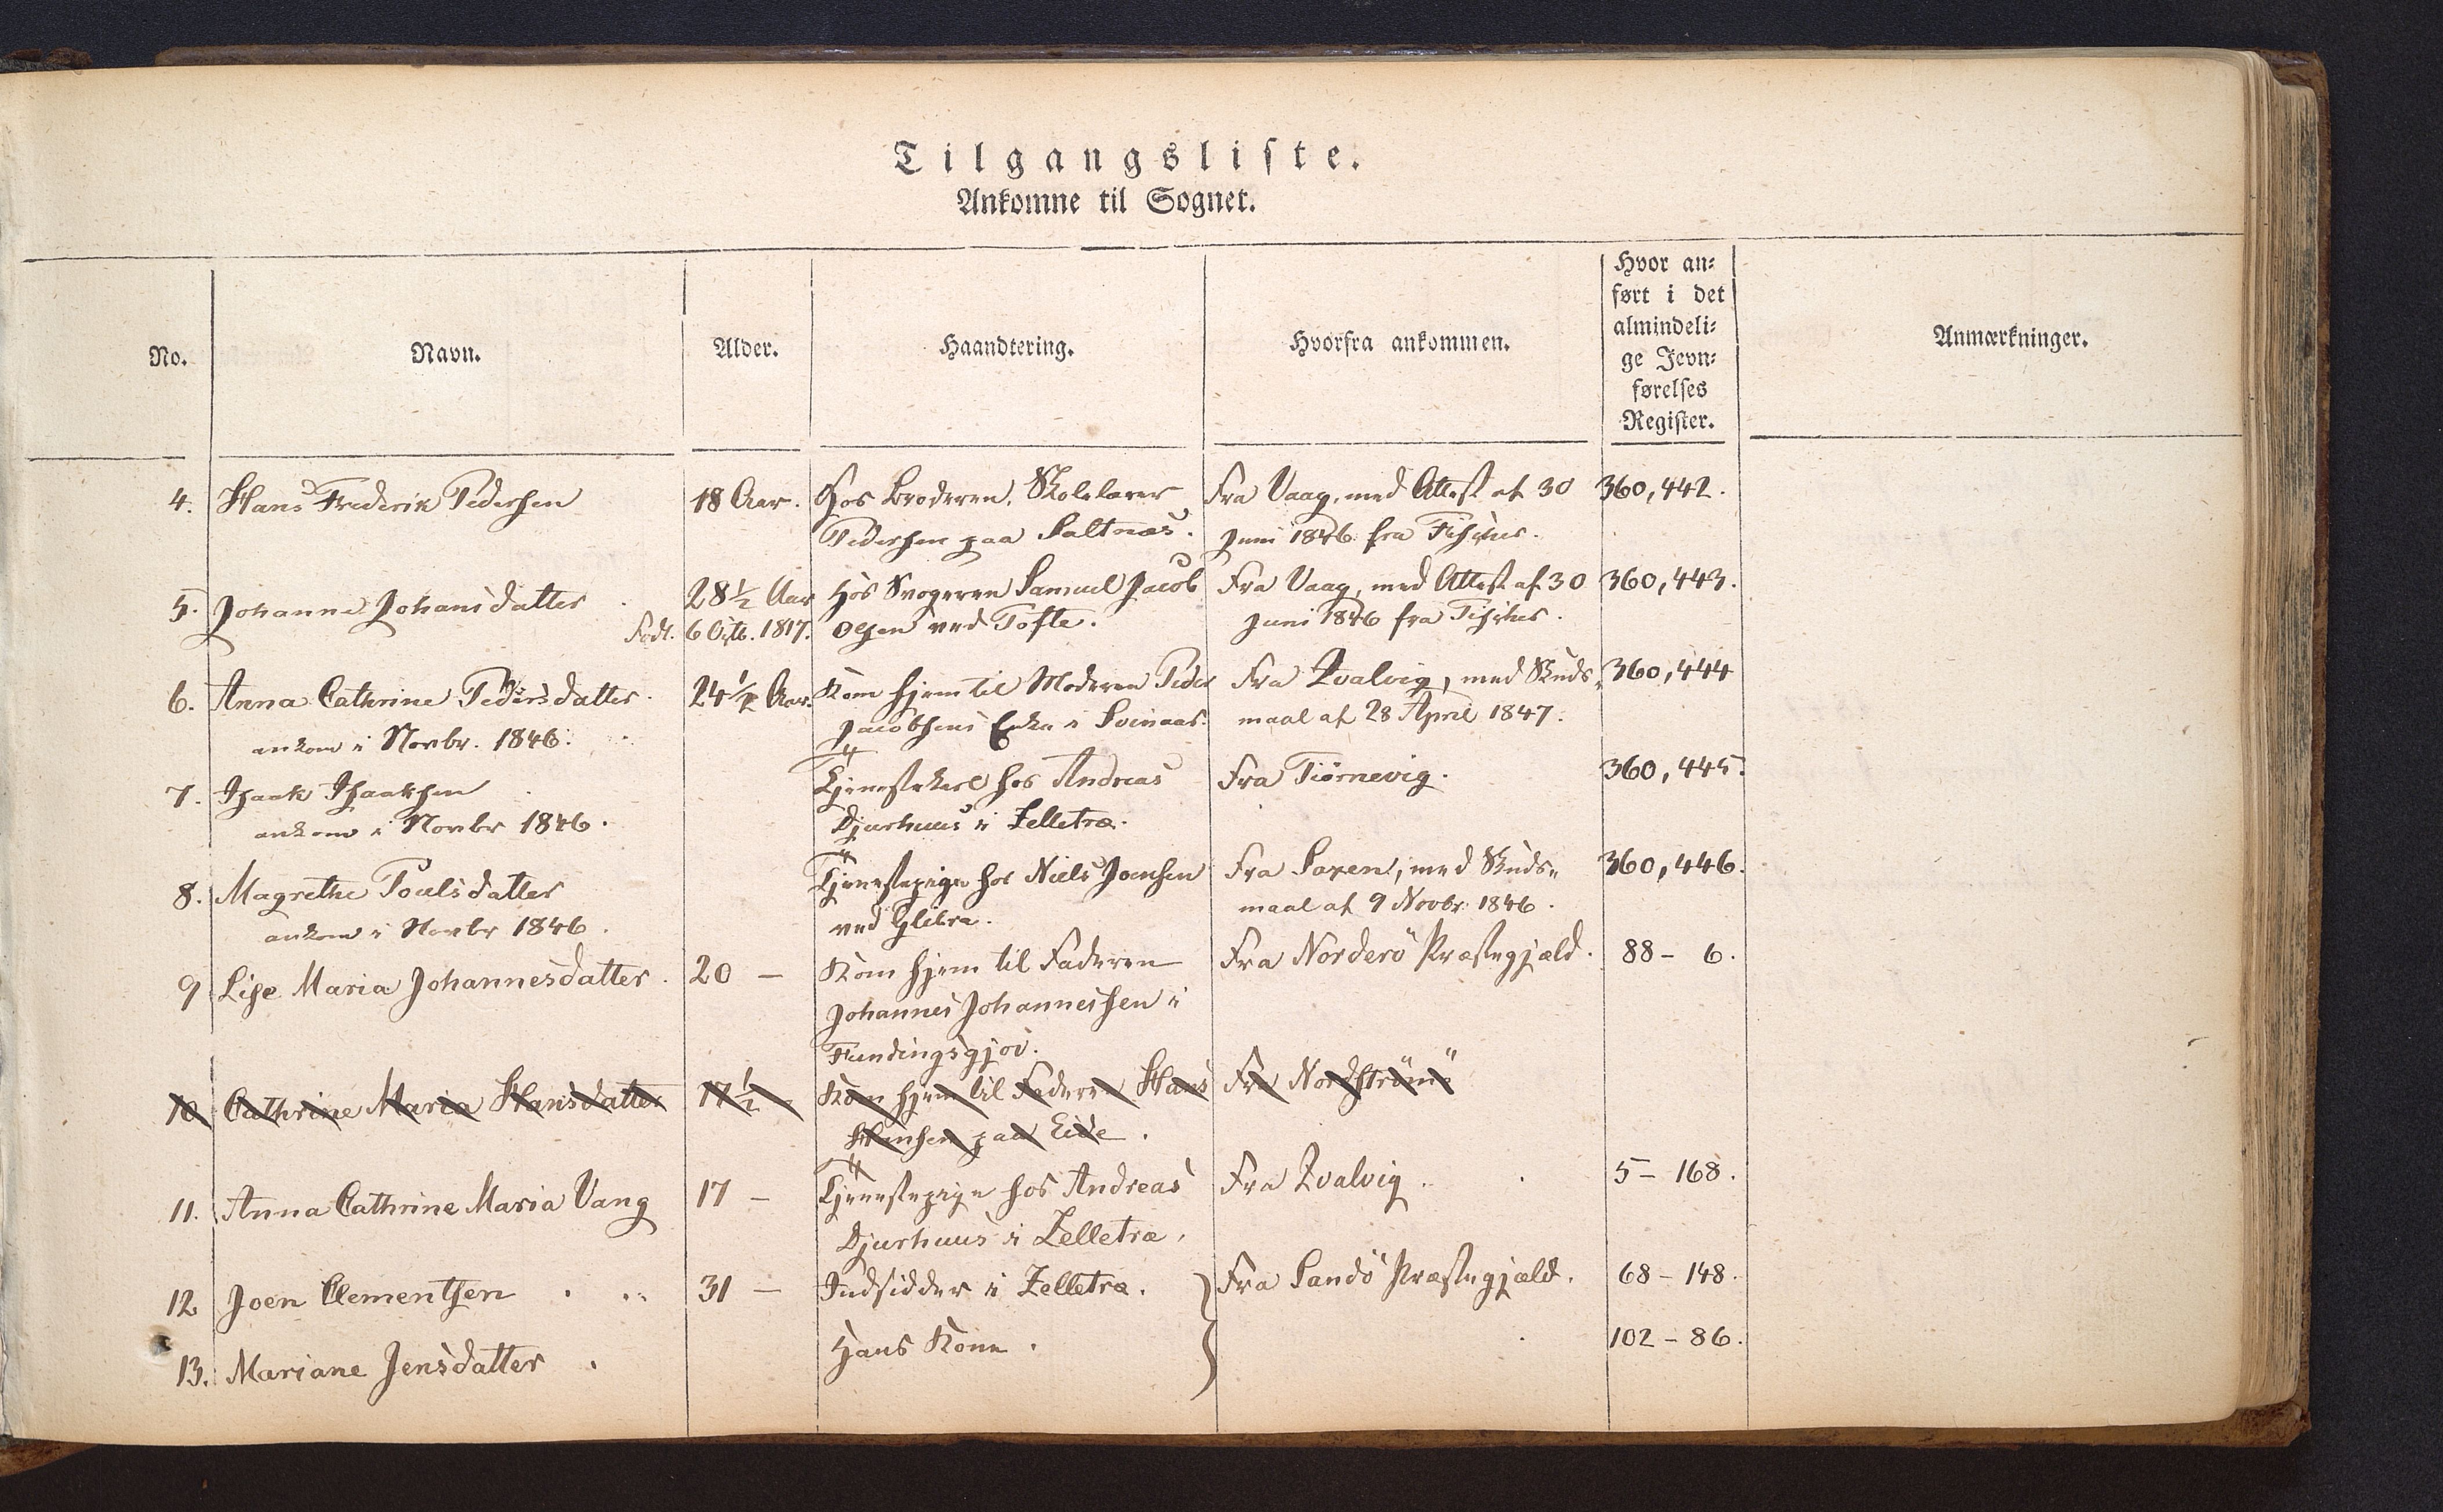 Tilgangsliste.
Ankomne til Sognet.
No.
Navn.
Alder.
Haandtering.
Hvorfra ankommen.
Hvor an-
ført i det
almindeli-
ge Jevn-
førelses
Register.
Anmærkninger.
4. Hans Frederik Pedersen 18 Aar. Hos Broderen, Skolelærer Fra Vaag, med Attest af 30 360, 442.
Pedersen paa Saltnæs. Juni 1846 fra
5. Johanne Johansdatter 28 1/2 Aar Hos Svogeren Samuel Jacob Fra Vaag, med Attest af 30 360, 443.
Født. 6 Octb. 1817. Olsen ved Tofte. Juni 1846 fra
6. Anna Cathrine Pedersdatter 24 1/2 Aar. Kom hjem til Moderen Peder Fra Qvalvig, med Skuds- 360, 444
ankom i Novbr. 1846. Jacobsens Enke i Svinaae. maal af 28 April 1847.
7. Isaak Isaaksen Tjenestekarl hos Andreas Fra Tiørnevig. 360, 445.
ankom i Novbr 1846. Djurhuus i Zelletræ.
8. Magrethe Poulsdatter Tjenestepige hos Niels Joensen Fra Saxen, med Skuds- 360, 446.
ankom i Novbr 1846. ved Glibre. maal af 9 Novbr 1846.
9 Lise Maria Johannesdatter. 20 — Kom hjem til Faderen Fra Norderö Præstegjæld. 88 - 6.
Johannes Johannessen i
Fundingsgjov.
10 Cathrine Maria Hansdatter 17 1/2 - Kom hjem til Faderen Hans Fra Nordströmö
Hansen paa Eide.
11. Anna Cathrine Maria Vang 17 — Tjenestepige hos Andreas Fra Qvalvig. 5 - 168.
Djurhuus i Zelletræ.
12 Joen Clementsen 31 — Indsidder i Zelletræ. Fra Sandö Præstegjæld. 68 - 148.
13. Mariane Jensdatter Hans Kone. 102 - 86.